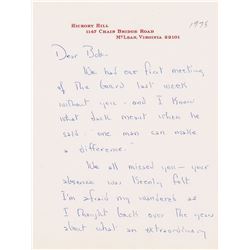 HICKORY HILL
1147 CHAIN BRIDGE ROAD
MCLEAN, VIRGINIA 22101
1978
Dear Bob -
We had our first meeting
of The Board last week
without you - and I know
what Jack meant when he
said "one man can make
a difference."
We all missed you - your
absence was keenly felt
I'm afraid my wandered as
I thought back over the years
about what an extraordinary